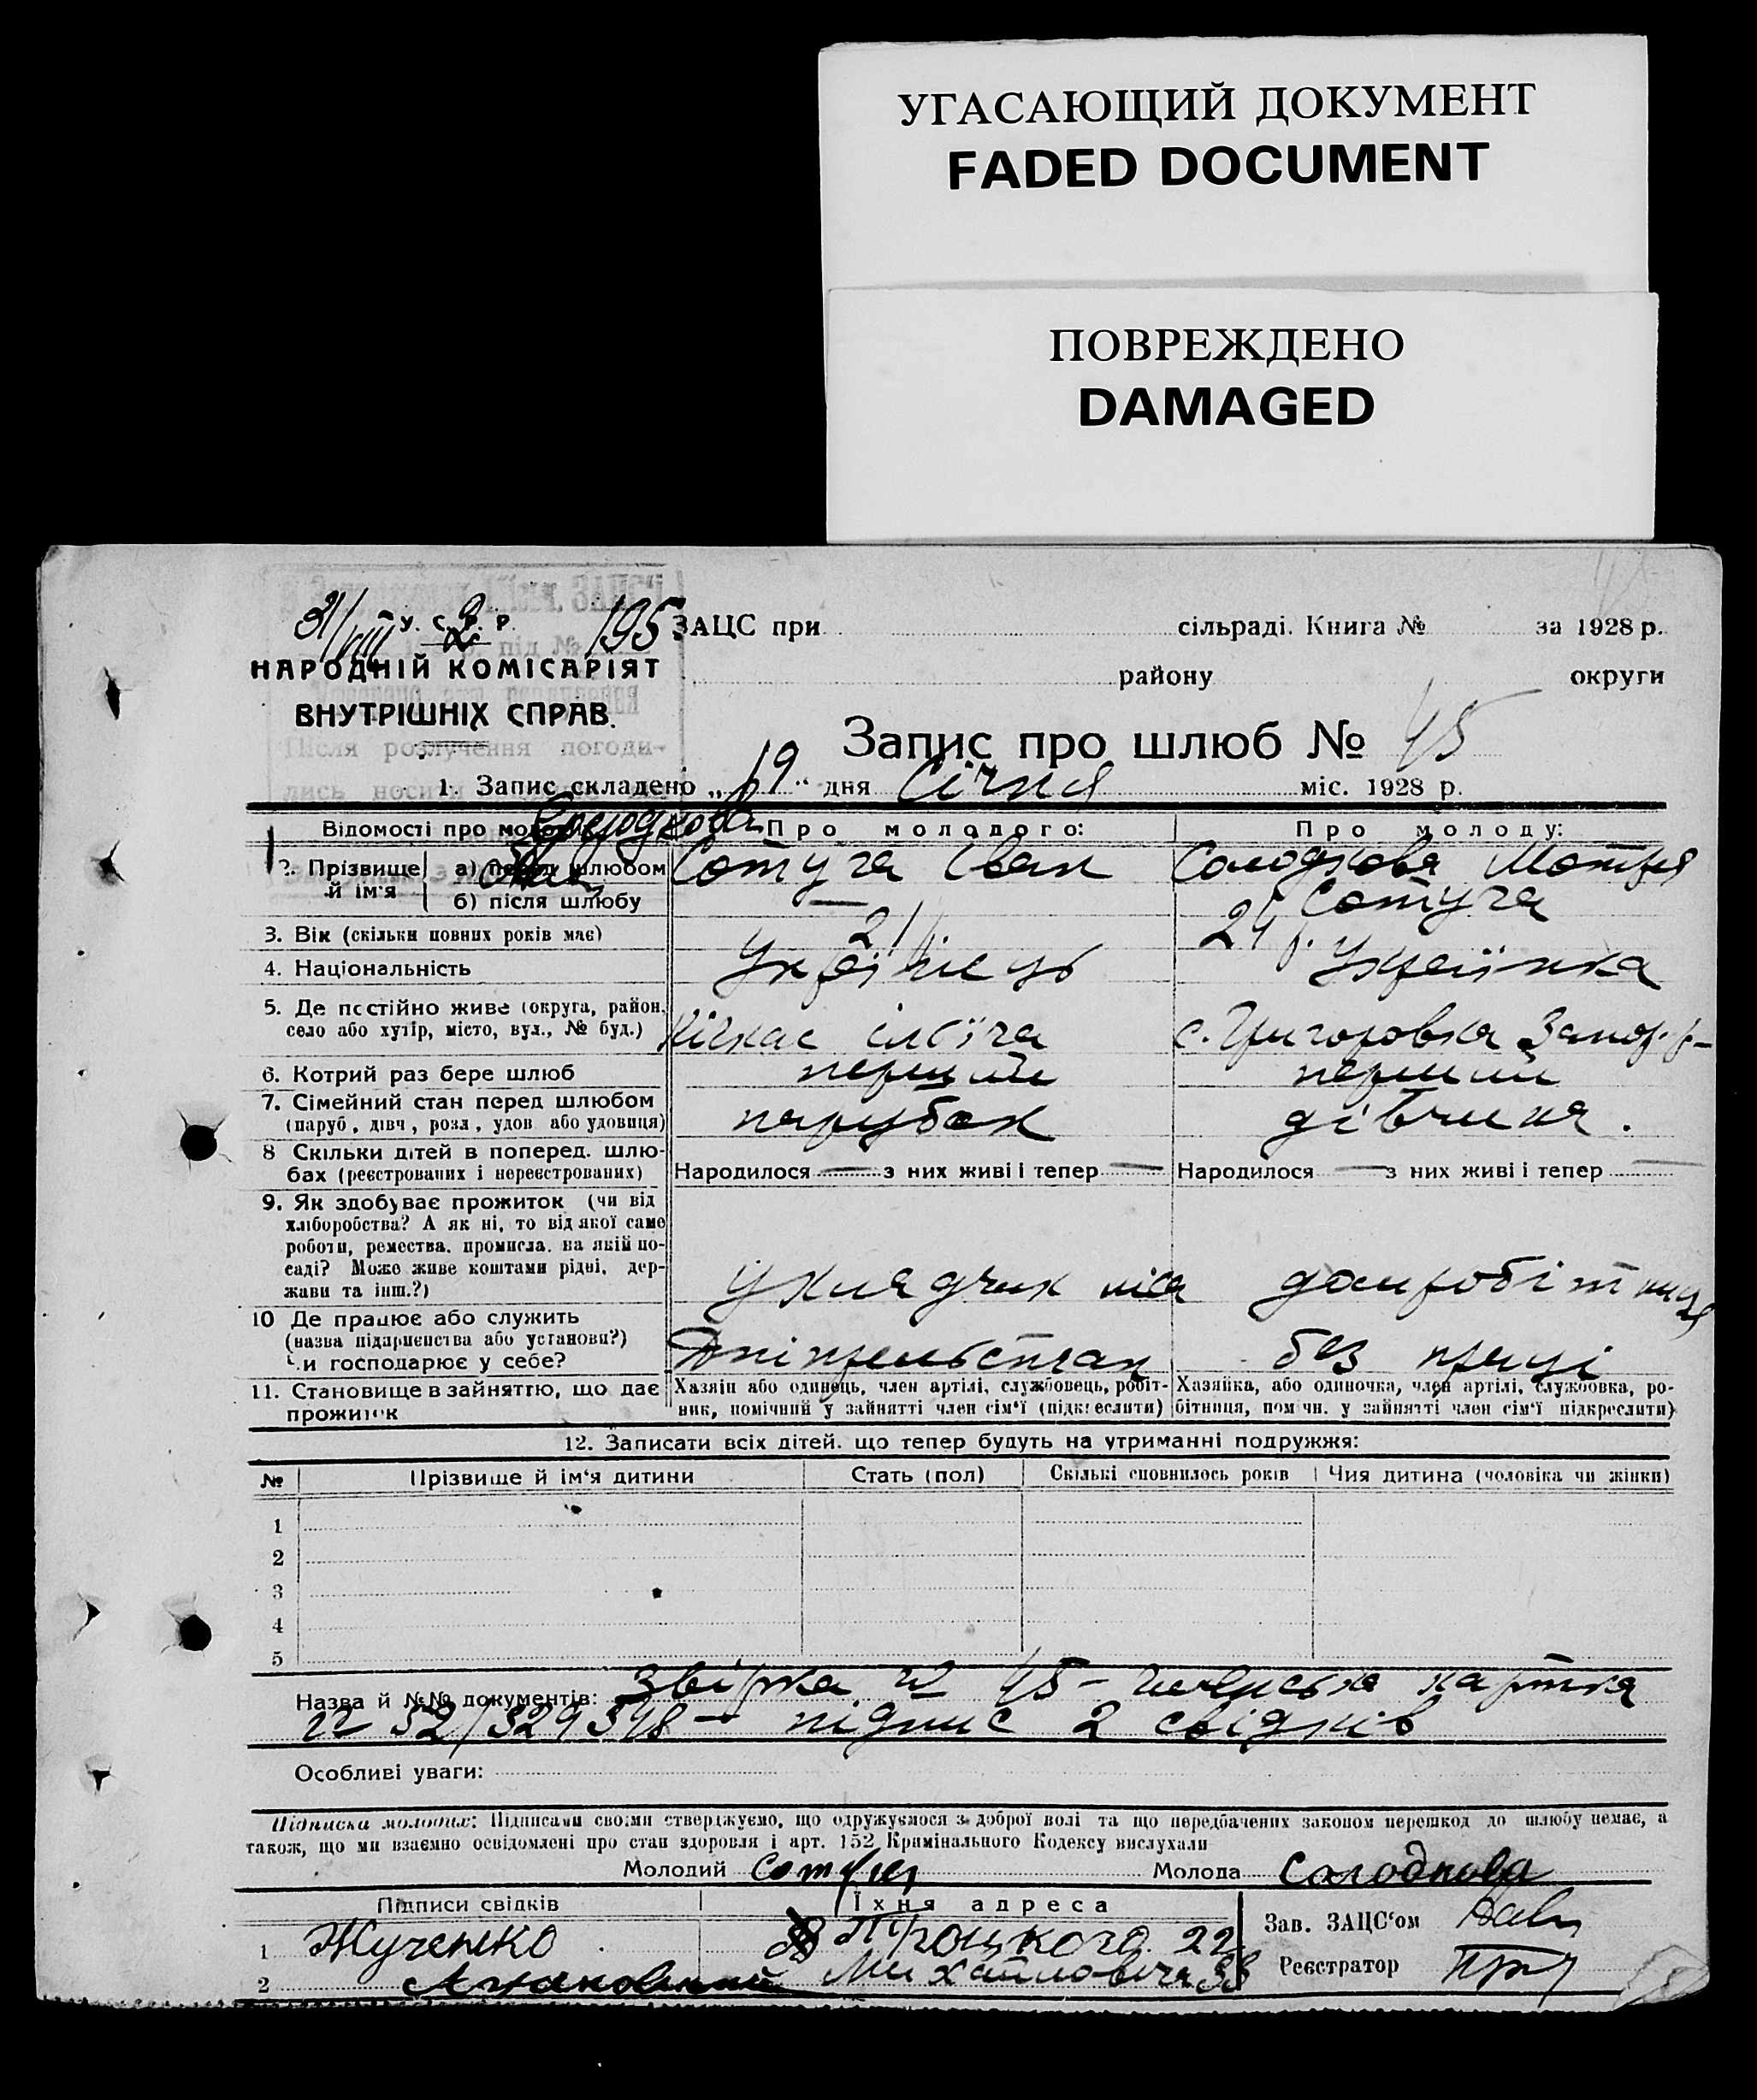 УГАСАЮЩИЙ ДОКУМЕНТ
FADED DOCUMENT
ПОВРЕЖДЕНО
DAMAGED
31/VIII 2 195
У. С. Р. Р.
НАРОДНІЙ КОМІСАРІЯТ
ВНУТРІШНІХ СПРАВ.
під №
Після розлучення погоди-
лись носити
ЗАЦС при сільраді. Книга № за 1928 р.
району округи
Запис про шлюб № 45
1. Запис складено „19“ дня Січня міс. 1928 р.
Солодкова
Відомості про Про молодого: Про молоду:
2. Прізвище й ім'я а) перед шлюбом Сотуга Іван Солодкова Мотря
б) після шлюбу — Сотуга
3. Вік (скільки повних років має) 21 24 р.
4. Національність Українець Українка
5. Де постійно живе (округа, район, село або хутір, місто, вул., № буд.) Кічкас с. Григоровка Запор. р-
6. Котрий раз бере шлюб перший перший
7. Сімейний стан перед шлюбом (паруб., дівч., розл., удов. або удовиця) парубок дівчина.
8 Скільки дітей в поперед. шлюбах (реєстрованих і нереєстрованих) Народилося — з них живі і тепер — Народилося — з них живі і тепер —
9. Як здобуває прожиток (чи від
хліборобства? А як ні, то від якої саме
роботи, ремества, промисла, на якій по-
саді? Може живе коштами рідні, дер-
жави та інш.?) укладчик домробітниця
10 Де працює або служить
(назва підприємства або установи?)
Чи господарює у себе? Дніпрельстан без праці
11. Становище в зайняттю, що дає прожиток
Хазяін або одинець, член артілі, службовець, робіт-
ник, помічний у зайнятті член сім'ї (підкреслити)
Хазяйка, або одиночка, член артілі, службовка, ро-
бітниця, помічн. у зайнятті член сім'ї підкреслити)
12. Записати всіх дітей, що тепер будуть на утриманні подружжя:
№ Прізвище й ім'я дитини Стать (пол) Скількі сповнилось років Чия дитина (чоловіка чи жінки)
1
2
3
4
5
Назва й №№ документів: Звірка № 45 - членська картка
№ 52/329548 - підпис 2 свідків
Особливі уваги:
Підписка молодих: Підписами своїми стверджуємо, що одружуємося з доброї волі та що передбачених законом перешкод до шлюбу немає, а
також, що ми взаємно освідомлені про стан здоровля і арт. 152 Кримінального Кодексу вислухали
Молодий Сотуга Молода Солодкова
Підписи свідків Їхня адреса Зав. ЗАЦС'ом
1 Жученко Троцького 22 Реєстратор
2 Михайловича 38